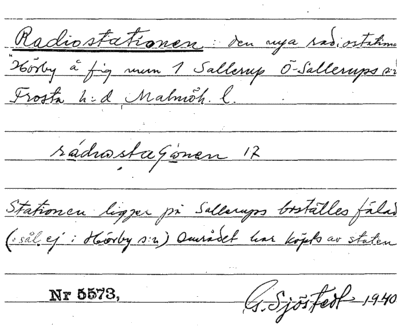 Radiostationen: den nya radiostation
Hörby å fig num 1 Sallerup Ö-Sallerups s:n
Frosta h:d, Malmöh. l.
rádiostaſjònen 17
Stationen ligger på Sallerups boställes fälad
(sål. ej i Hörby s:n) Området har köpts av staten
Nr 5573,
G. Sjöstedt 1940